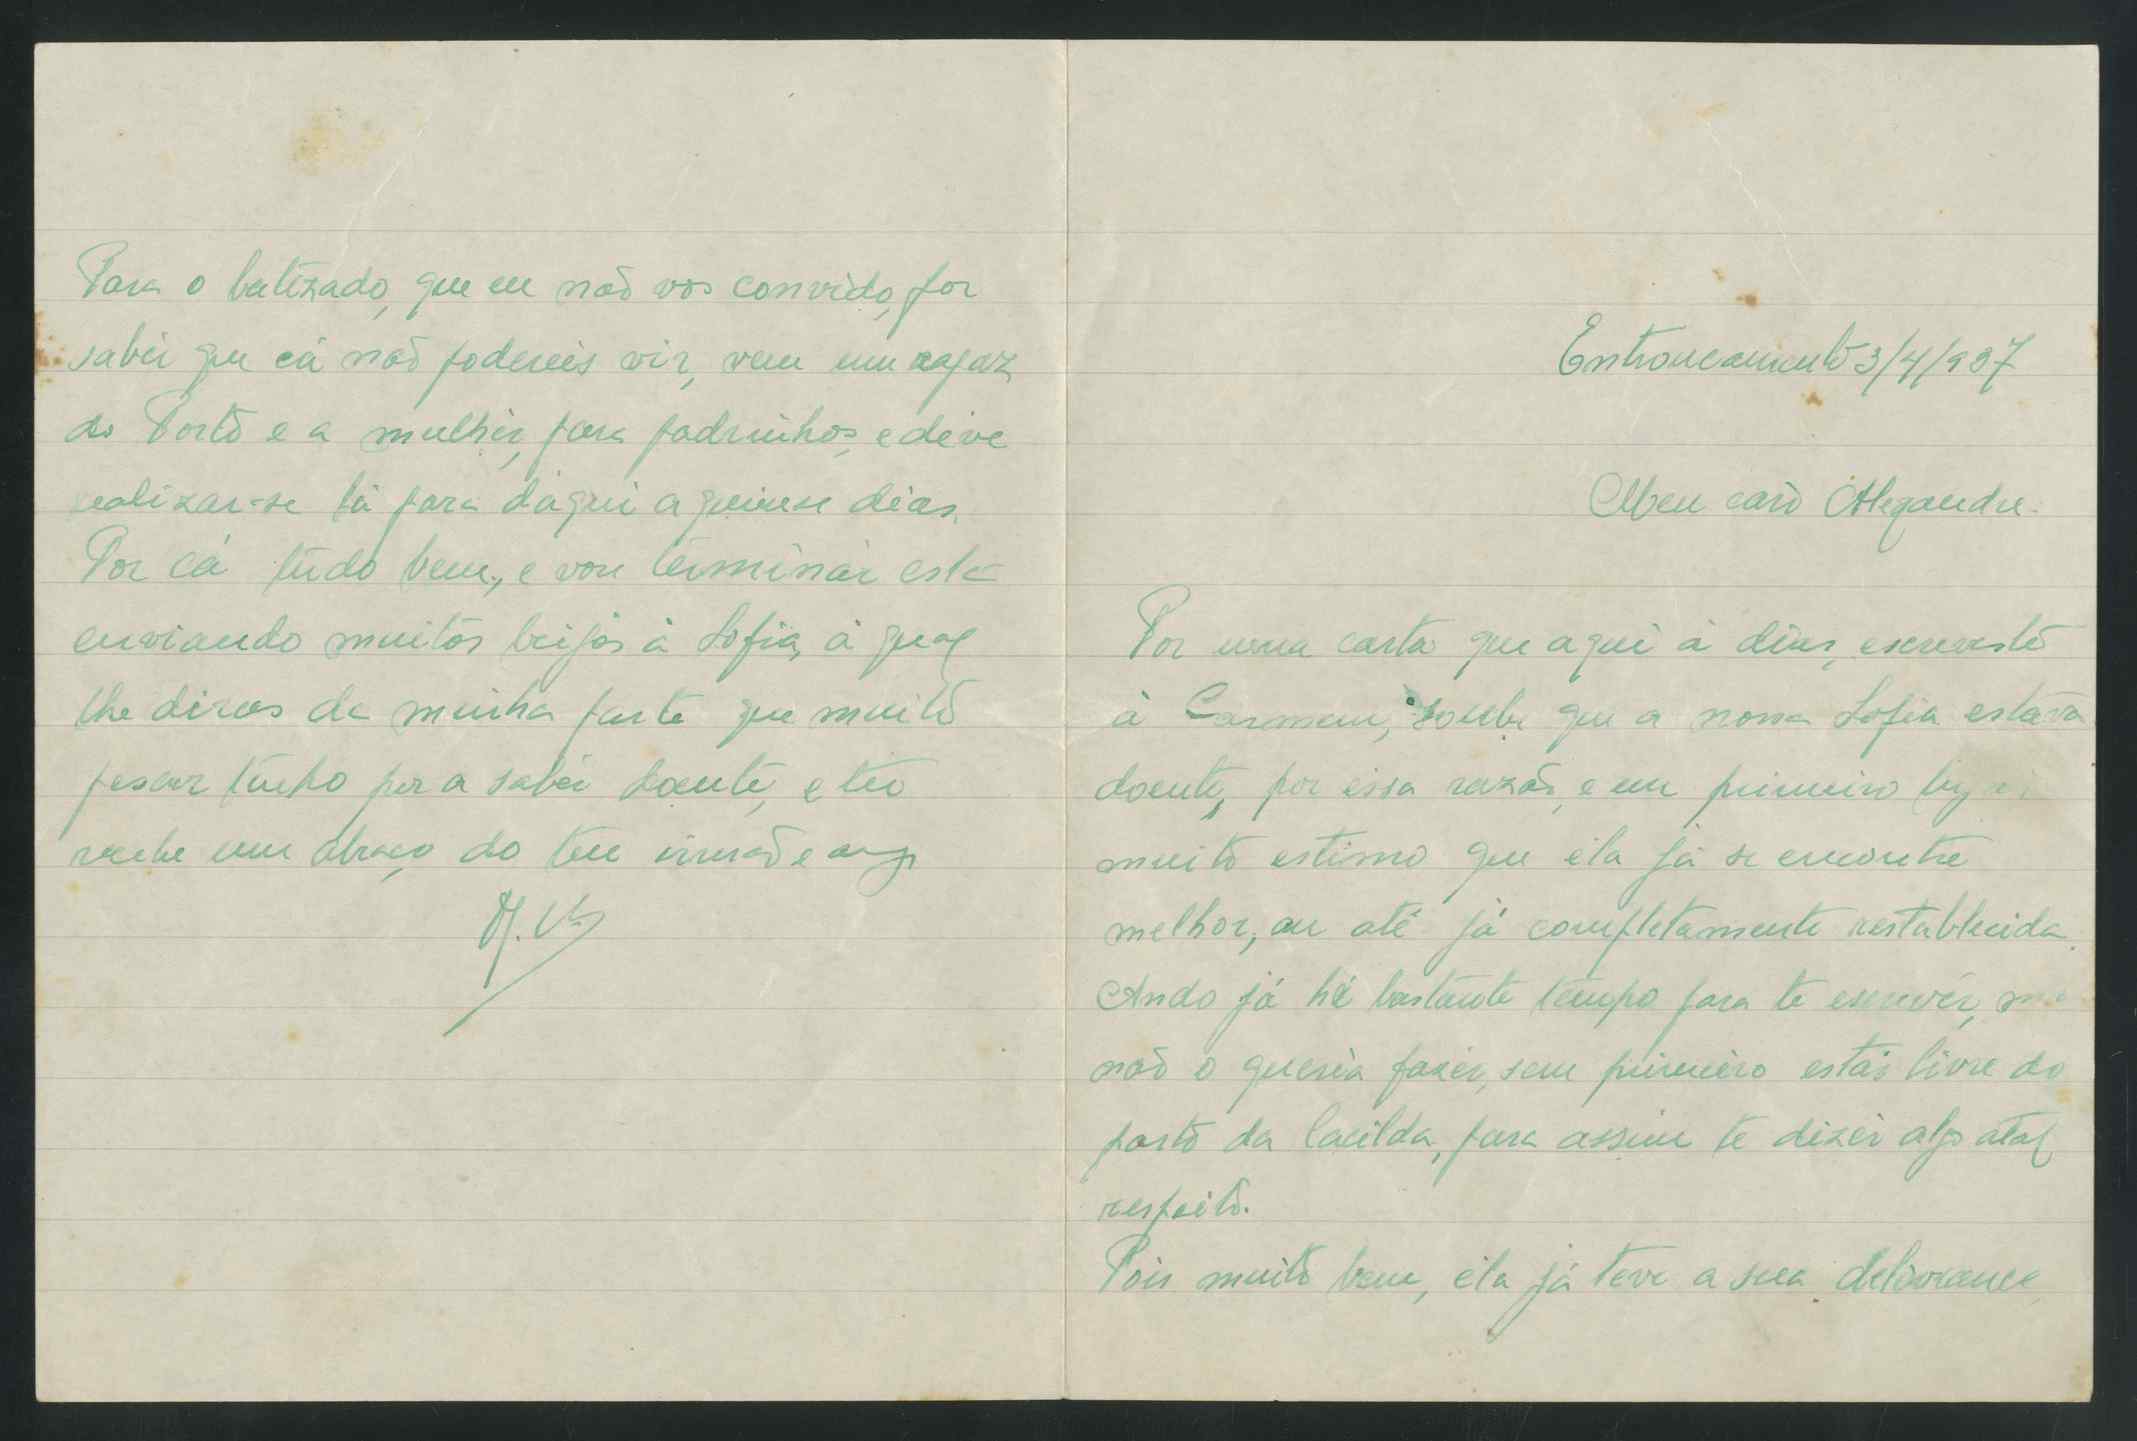 Entroncamento 3/4/937
Meu caro Alexandre.
Por uma carta que aqui à dias, escreveste
à Carmen, soube que a nossa Sofia estava
doente, por essa razão, e em primeiro lugar
muito estimo que éla já se encontre
melhor, ou até já completamente restablecida.
Ando já há bastante tempo para te escrever,
não o queria fazer, sem primeiro estár livre do
parto da Cacilda, para assim te dizer algo atal
respeito.
Pois muito bem, éla já teve a sua delivrance,
Para o batizado, que eu não vos convido, por
saber que cá não podereis vir, vem um rapaz
do Porto e a mulher, para padrinhos, e deve
realizar-se lá para daqui a quinse dias.
Por cá tudo bem, e vou terminar esta
enviando muitos beijos à Sofia, à qual
lhe diras da minha parte que muito
pesar tenho por a saber doente, e tu
recebe um abraço do teu irmão e amgo